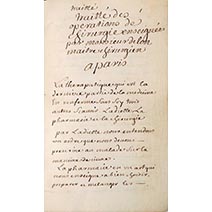 traité
traitté des
opérations de
chirurgie enseignée
par monsieur
maitre chirurgien
a paris
La therapeutique est la
derniere partie de la medecine
En renferme sous soy trois
autres scavoir La diette La
pharmacie et la chirurgie
par La diette nous entendons
un ordre que nous devons
au malade sur la
maniere de vivre
La pharmacie est un art qui
nous enseigne a bien choisir,
preparer et melanger les